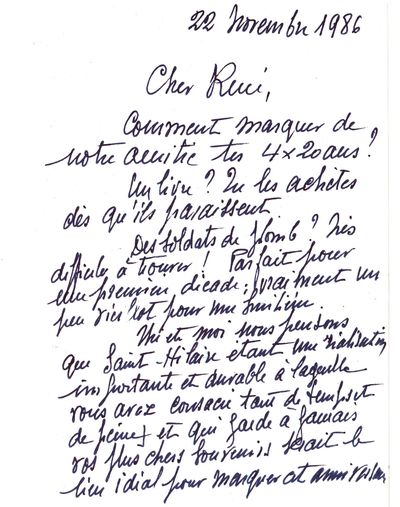 22 Novembre 1986
Cher René,
Comment marquer de
notre amitié tes 4 x 20 ans ?
Un livre ? Tu les achètes
dès qu'ils paraissent.
Des soldats de plomb ? Très
difficile à trouver ! Parfait pour
une première décade ; vraiment un
peu vieillot pour une huitième.
et moi nous pensons
que Saint-Hilaire étant une réalisation
importante et durable à laquelle
vous avez consacré tant de temps et
de peine et qui garde à jamais
vos plus chers souvenirs serait le
lien idéal pour marquer cet anniversaire